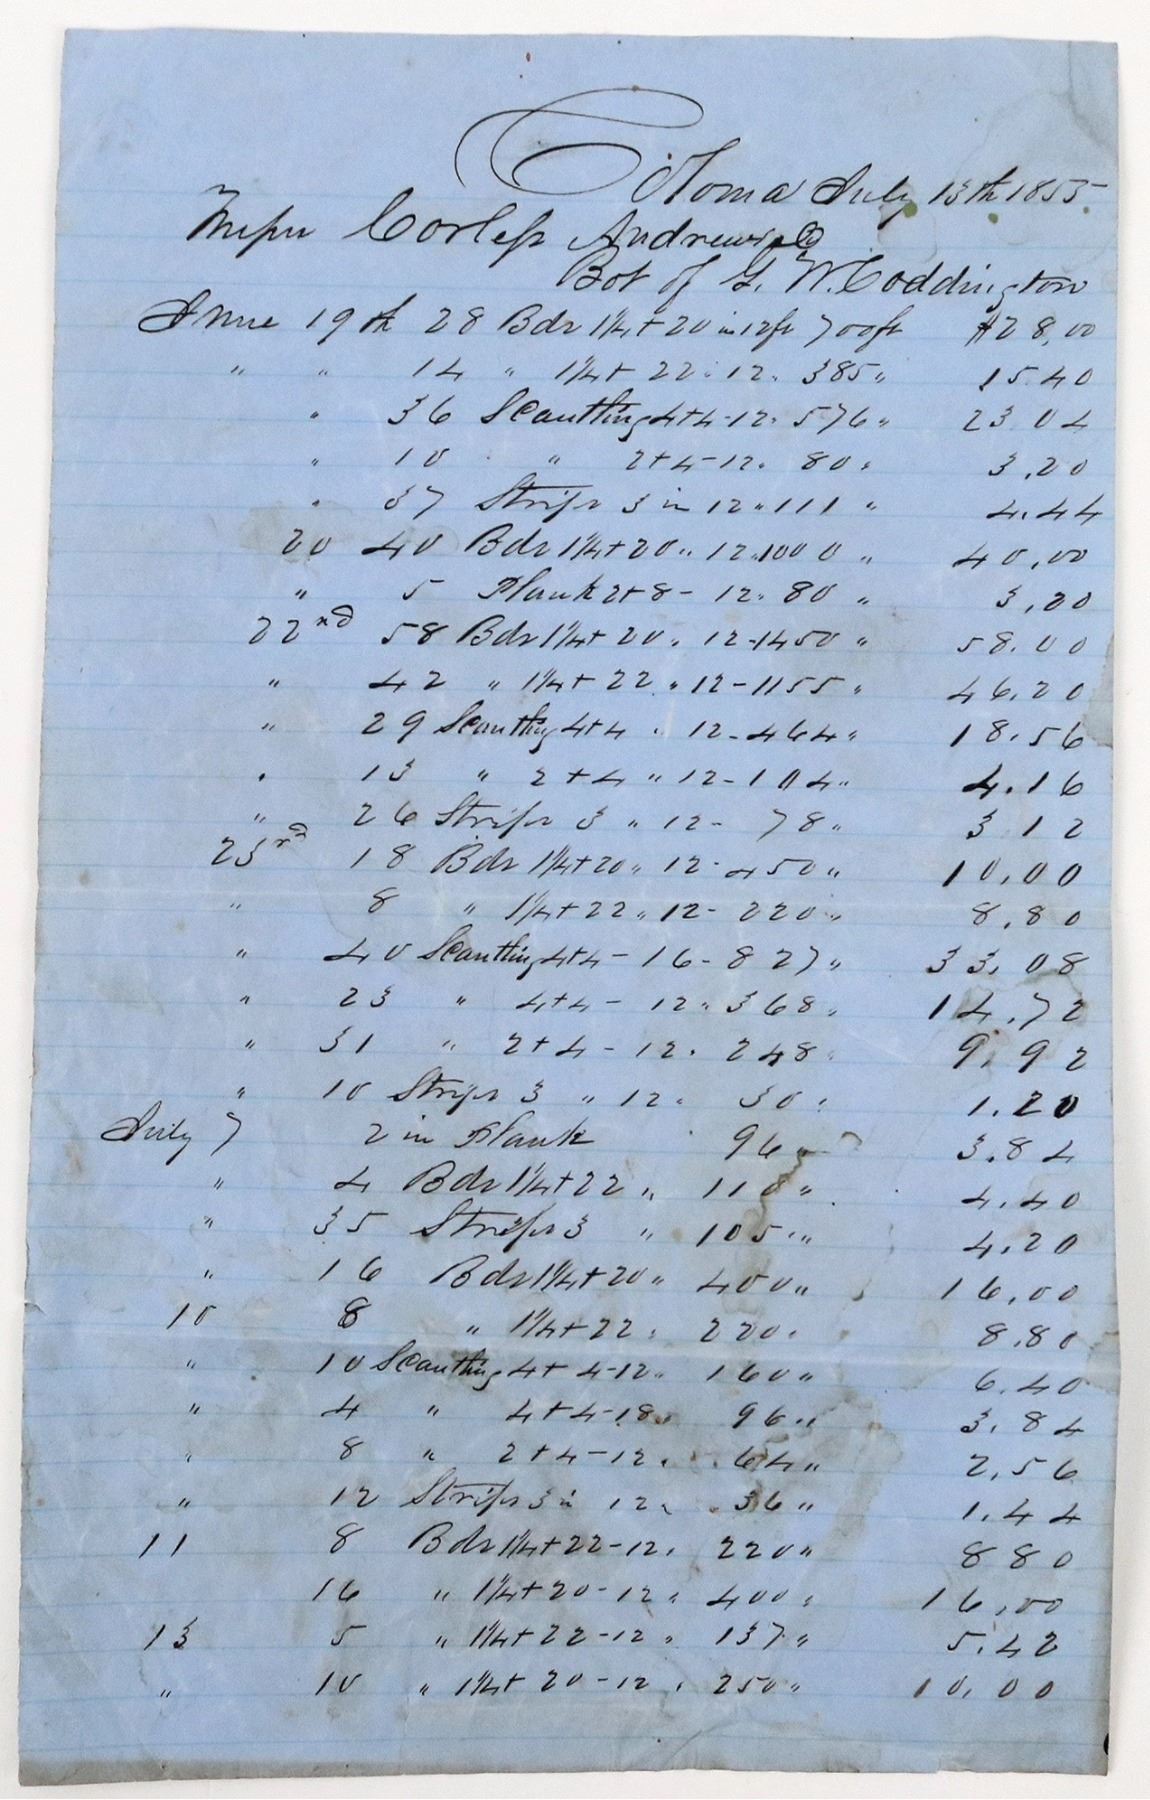 Coloma July 13th 1855
Messrs Corless Andrews & Co
Bot of G. W. Coddington
June 19th 28 Bds 1¼+20 in 12ft 700ft $28,00
" " 14 " 1¼+ 22 " 12 " 385 " 15.40
" 36 Scantling 4+4-12 " 576 " 23 04
" 10 " 2+4-12 " 80 " 3,20
" 37 Strips 3 in 12 " 111 " 4.44
20 40 Bds 1¼+20 " 12 " 1000 " 40,00
" 5 Plank 2+8 - 12 " 80 " 3,20
22nd 58 Bds 1¼+ 20 " 12-1450 " 58.00
" 42 " 1¼+ 22 " 12-1155 " 46.20
" 29 Scantling 4+4 " 12-464 " 18.56
" 13 " 2+4 " 12-104 " 4.16
" 26 Strips 3 " 12- 78 " 3 12
23rd 18 Bds 1¼+20 " 12-450 " 10,00
" 8 " 1¼+22 " 12- 220 " 8,80
" 40 Scantling 4+4 - 16-827 " 33,08
" 23 " 4+4 - 12 " 368 " 14.72
" 31 " 2+4 - 12 " 248 " 9,92
" 10 Strips 3 " 12 " 30 " 1.20
July 7 2 in Plank 96 " 3.84
" 4 Bds 1¼+22 " 110 " 4.40
" 35 Strips 3 " 105 " 4.20
" 16 Bds 1¼+20 " 400 " 16,00
10 8 " 1¼+22 " 220 " 8.80
" 10 Scantling 4+4-12 " 160 " 6.40
" 4 " 4+4-18 " 96 " 3.84
" 8 " 2+4-12 " 64 " 2,56
" 12 Strips 3 in 12 " 36 " 1.44
11 8 Bds 1¼+22-12 " 220 " 8 80
16 " 1¼+20-12 " 400 " 16,00
13 5 " 1¼+22-12 " 137 " 5.42
" 10 " 1¼+ 20-12 " 250 " 10,00